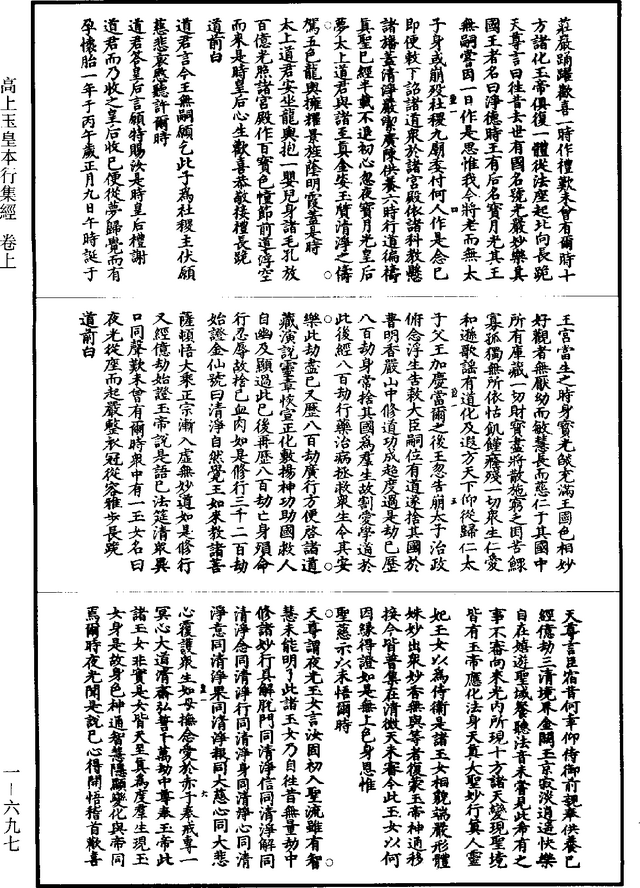 莊嚴踴躍歡喜一時作禮歎未曾有爾時十
方諸化玉帝俱復一體從法座起北向長跪
天尊言曰往昔去世有國名號光嚴妙樂其
國王者名曰淨德時王有后名寶月光其王
無嗣嘗因一日作是思惟我今將老而無太
子身或崩殁社稷九廟委付何人作是念已
即便敕下詔諸道衆於諸宮殿依諸科教懸
諸旛蓋清淨嚴潔廣陳供養六時行道徧禱
真聖已經半載不退初心忽夜寶月光皇后
夢太上道君與諸至真金姿玉質清淨之儔
駕五色龍輿擁耀景旌蔭明霞蓋是時
太上道君安坐龍輿抱一嬰兒身諸毛孔放
百億光照諸宮殿作百寶色幢節前道浮空
而來是時皇后心生歡喜恭敬接禮長跪
道前白
道君言今王無嗣願乞此子為社稷主伏願
慈悲哀愍聽許爾時
道君答皇后言願特賜汝是時皇后禮謝
道君而乃收之皇后收已便從夢歸覺而有
孕懷胎一年于丙午歲正月九日午時誕于
王宮當生之時身寶光燄充滿王國色相妙
好觀者無厭幼而敏慧長而慈仁于其國中
所有庫藏一切財寶盡將散施窮乏困苦鰥
寡孤獨無所依怙飢饉癃殘一切衆生仁愛
和遜歌謠有道化及遐方天下仰從歸仁太
子父王加慶當爾之後王忽告崩太子治政
俯念浮生告敕大臣嗣位有道遂捨其國於
普明香嚴山中修道功成超度過是劫已歷
八百劫身常捨其國為羣生故割愛學道於
此後經八百劫行藥治病拯救衆生令其安
樂此劫盡已又歷八百劫廣行方便啓諸道
藏演說靈章恢宣正化敷揚神功助國救人
自幽及顯過此已後再歷八百劫亡身殞命
行忍辱故捨己血肉如是修行三千二百劫
始證金仙號曰清淨自然覺王如來教諸菩
薩頓悟大乘正宗漸入虛無妙道如是修行
又經億劫始證玉帝說是語已法筵清衆異
口同聲歎未曾有爾時衆中有一玉女名曰
夜光從座而起嚴整衣冠從容雅步長跪
道前白
天尊言臣宿昔何幸仰侍御前親奉供養已
經億劫三清境界金闕玉京寂淡逍遙快樂
自在嬉遊聖域餐聽法音未嘗見此希有之
事不審向來光内所現十方諸天變現聖境
皆有玉帝應化法身天真大聖妙行真人靈
妃玉女以為侍衛是諸玉女相貌端嚴形體
姝妙出衆妙香無與等者復蒙玉帝神通移
接今皆普集在清微天未審今此玉女以何
因緣得證如是無上色身恩惟
聖慈示以未悟爾時
天尊謂夜光玉女言汝因初入聖流雖有智
慧未能明了此諸玉女乃自往昔無量劫中
修諸妙行具解脫門同清淨信同清淨解同
清淨念同清淨行同清淨身同清淨心同清
淨意同清淨果同清淨報同大慈心同大悲
心覆護衆生如母撫念愛於赤子奉戒專一
冥心大道清齋弘誓千萬劫中尊奉玉帝此
諸玉女非實是女皆天至真為度羣生現玉
女身是故身色神通智慧隱顯變化與帝同
焉爾時夜光聞是說已心得開悟稽首歡喜
高上玉皇本行集經 卷上
一—六九七